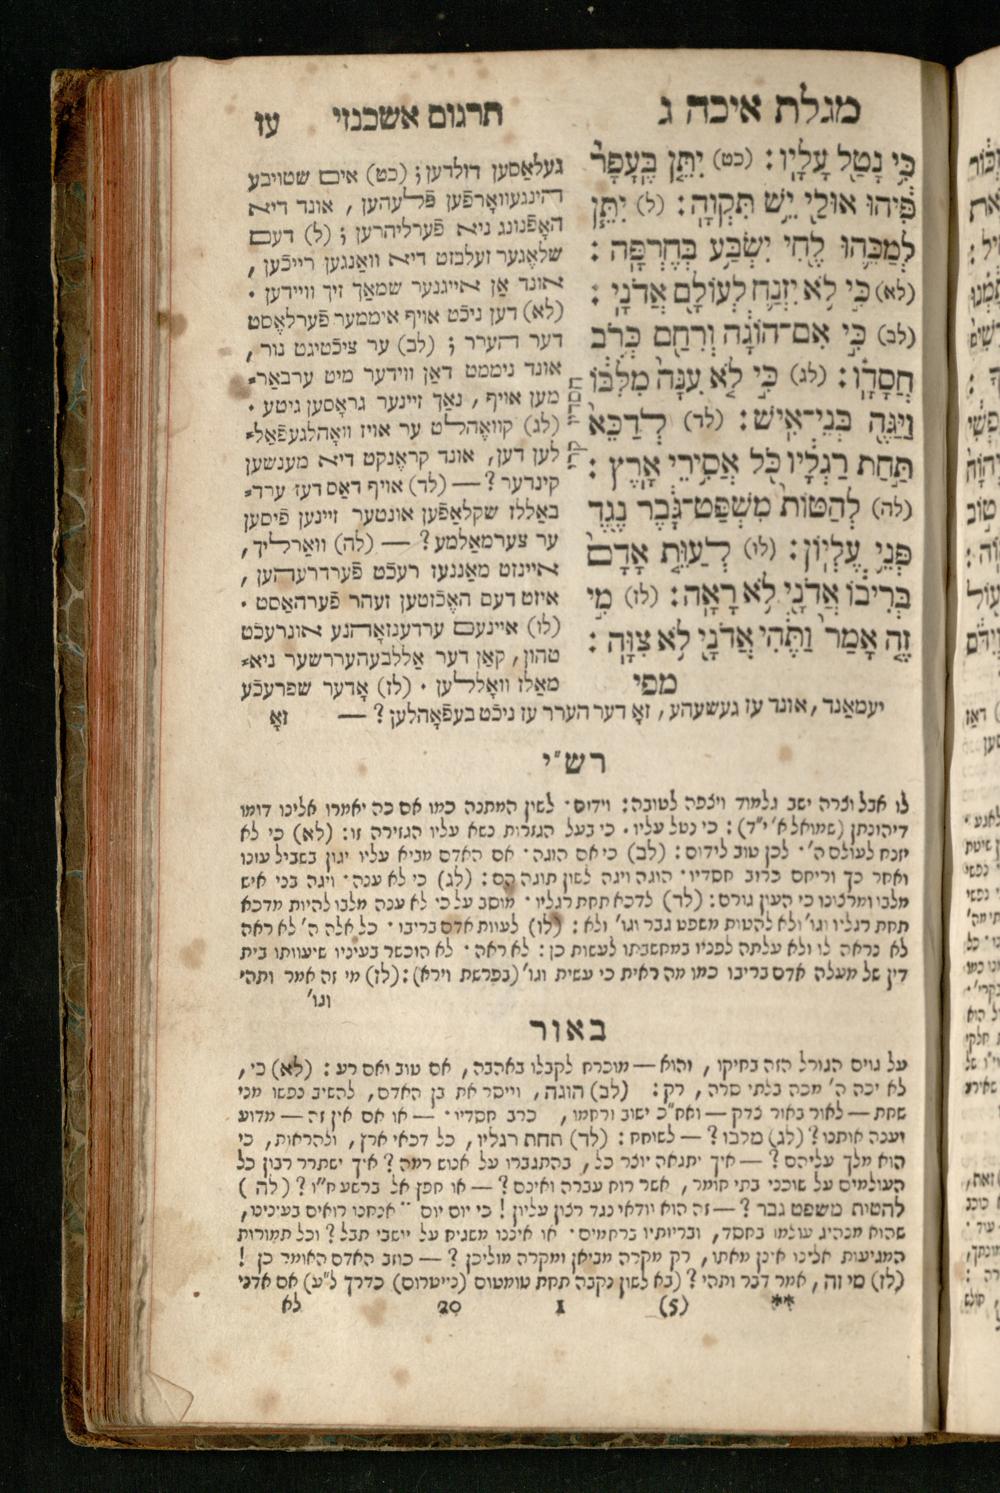 מגלת איכה ג
תרגום אשכנזי
עז
כִּ֥י נָטַ֖ל עָלָֽיו׃ (כט) יִתֵּ֤ן בֶּֽעָפָר֙
פִּ֔יהוּ אוּלַ֖י יֵ֥שׁ תִּקְוָֽה׃ (ל) יִתֵּ֧ן
לְמַכֵּ֛הוּ לֶ֖חִי יִשְׂבַּ֥ע בְּחֶרְפָּֽה׃
(לא) כִּ֣י לֹ֥א יִזְנַ֛ח לְעוֹלָ֖ם אֲדֹנָֽי׃
(לב) כִּ֣י אִם־הוֹגָ֔ה וְרִחַ֖ם כְּרֹ֥ב
חֲסָדָֽו׃ (לג) כִּ֣י לֹ֤א עִנָּה֙ מִלִּבּ֔וֹ
וַיַּגֶּ֖ה בְּנֵי־אִֽישׁ׃ (לד) לְדַכֵּא֙
תַּ֣חַת רַגְלָ֔יו כֹּ֖ל אֲסִ֥ירֵי אָֽרֶץ׃
(לה) לְהַטּוֹת֙ מִשְׁפַּט־גָּ֔בֶר נֶ֖גֶד
פְּנֵ֥י עֶלְיֽוֹן׃ (לו) לְעַוֵּ֤ת אָדָם֙
בְּרִיב֔וֹ אֲדֹנָ֖י לֹ֥א רָאָֽה׃ (לז) מִ֣י
זֶ֤ה אָמַר֙ וַתֶּ֔הִי אֲדֹנָ֖י לֹ֥א צִוָּֽה׃
מפי
חסדיו קרי
געלאַסען דולדען; (כט) אים שטויבע
הינגעוואָרפֿען פֿלעהען, אונד דיא
האָפֿנונג ניא פֿערליהרען; (ל) דעם
שלאָגער זעלבזט דיא וואַנגען רייכֿען,
אונד אן אייגנער שמאַך זיך וויידען.
(לא) דען ניכֿט אויף איממער פֿערלאַסט
דער הערר; (לב) ער ציכֿטיגט נור,
אונד נימט דאַן ווידער מיט ערבאַר=
מען אויף, נאַך זיינער גראָסען גיטע.
(לג) קוועהלט ער אויז וואָהלגעפֿאַל=
לען דען, אונד קרענקט דיא מענשען
קינדער? — (לד) אויף דאַס דעז ערד=
באַללז שקלאַפֿען אונטער זיינען פֿיסען
ער צערמאַלמע? — (לה) וואַרליך,
איינזט מאַננעז רעכֿט פֿערדרעהען,
איזט דעם האָכֿזטען זעהר פֿערהאַסט.
(לו) איינעם ערדענזאָהנע אונרעכֿט
טהון, קאַן דער אַללבעהעררשער ניא=
מאַלז וואָללען. (לז) אָדער שפרעכֿע
יעמאַנד, אונד עז געשעהע, זאָ דער הערר עז ניכֿט בעפֿאָהלען? —
זאָ
רש"י
לו אבל וצרה ישב גלמוד ויצפה לטובה: וידום. לשון המתנה כמו אם כה יאמרו אלינו דומו
דיהונתן (שמואל א' י"ד): כי נטל עליו. כי בעל הגזרות נשא עליו הגזירה זו: (לא) כי לא
יזנח לעולם ה'. לכן טוב לידום: (לב) כי אם הוגה. אם האדם מביא עליו יגון בשביל עונו
ואחר כך וריחם כרוב חסדיו. הוגה ויגה לשון תוגה הם: (לג) כי לא ענה. ויגה בני איש
מלבו ומרצונו כי העון גורם: (לד) לדכא תחת רגליו. מוסב על כי לא ענה מלבו להיות מדכא
תחת רגליו וגו' ולא להטות משפט גבר וגו' ולא: (לו) לעוות אדם בריבו. כל אלה ה' לא ראה
לא נראה לו ולא עלתה לפניו במחשבתו לעשות כן: לא ראה. לא הוכשר בעיניו שיעוותו בית
דין של מעלה אדם בריבו כמו מה ראית כי עשית וגו' (בפרשת וירא): (לז) מי זה אמר ותהי
וגו'
באור
על גוים הגורל הזה בחיקו, והוא — מוכרח לקבלו באהבה, אם טוב ואם רע: (לא) כי,
לא יכה ה' מכה בלתי סרה, רק: (לב) הוגה, וייסר את בן האדם, להשיב נפשו מני
שחת — לאור באור צדק — ואח"כ ישוב ורחמו, כרב חסדיו. — או אם אין זה — מדוע
יענה אותנו? (לג) מלבו? — לשוחח: (לד) תחת רגליו, כל דכאי ארץ, ולהראות, כי
הוא מלך עליהם? — איך יתגאה יוצר כל, בהתגברו על אנוש רמה? איך ישתרר רבון כל
העולמים על שוכני בתי חומר, אשר רוח עברה ואינם? — או חפץ אל ברשע ח"ו? (לה)
להטות משפט גבר? — זה הוא יודאי נגד רצון עליון! כי יום יום אנחנו רואים בעינינו,
שהוא מנהיג עולמו בחסד, ובריותיו ברחמים. או איננו משגיח על יושבי תבל? וכל תמורות
המגיעות אלינו אינן מאתו, רק מקרה מביאן ומקרה מוליכן? — כוזב האדם האומר כן!
(לז) מי זה, אמר דבר ותהי? (בא לשון נקבה תחת טומטום (נייטרום) כדרך ל"ע) אם אדני
** (5) I 20 לא